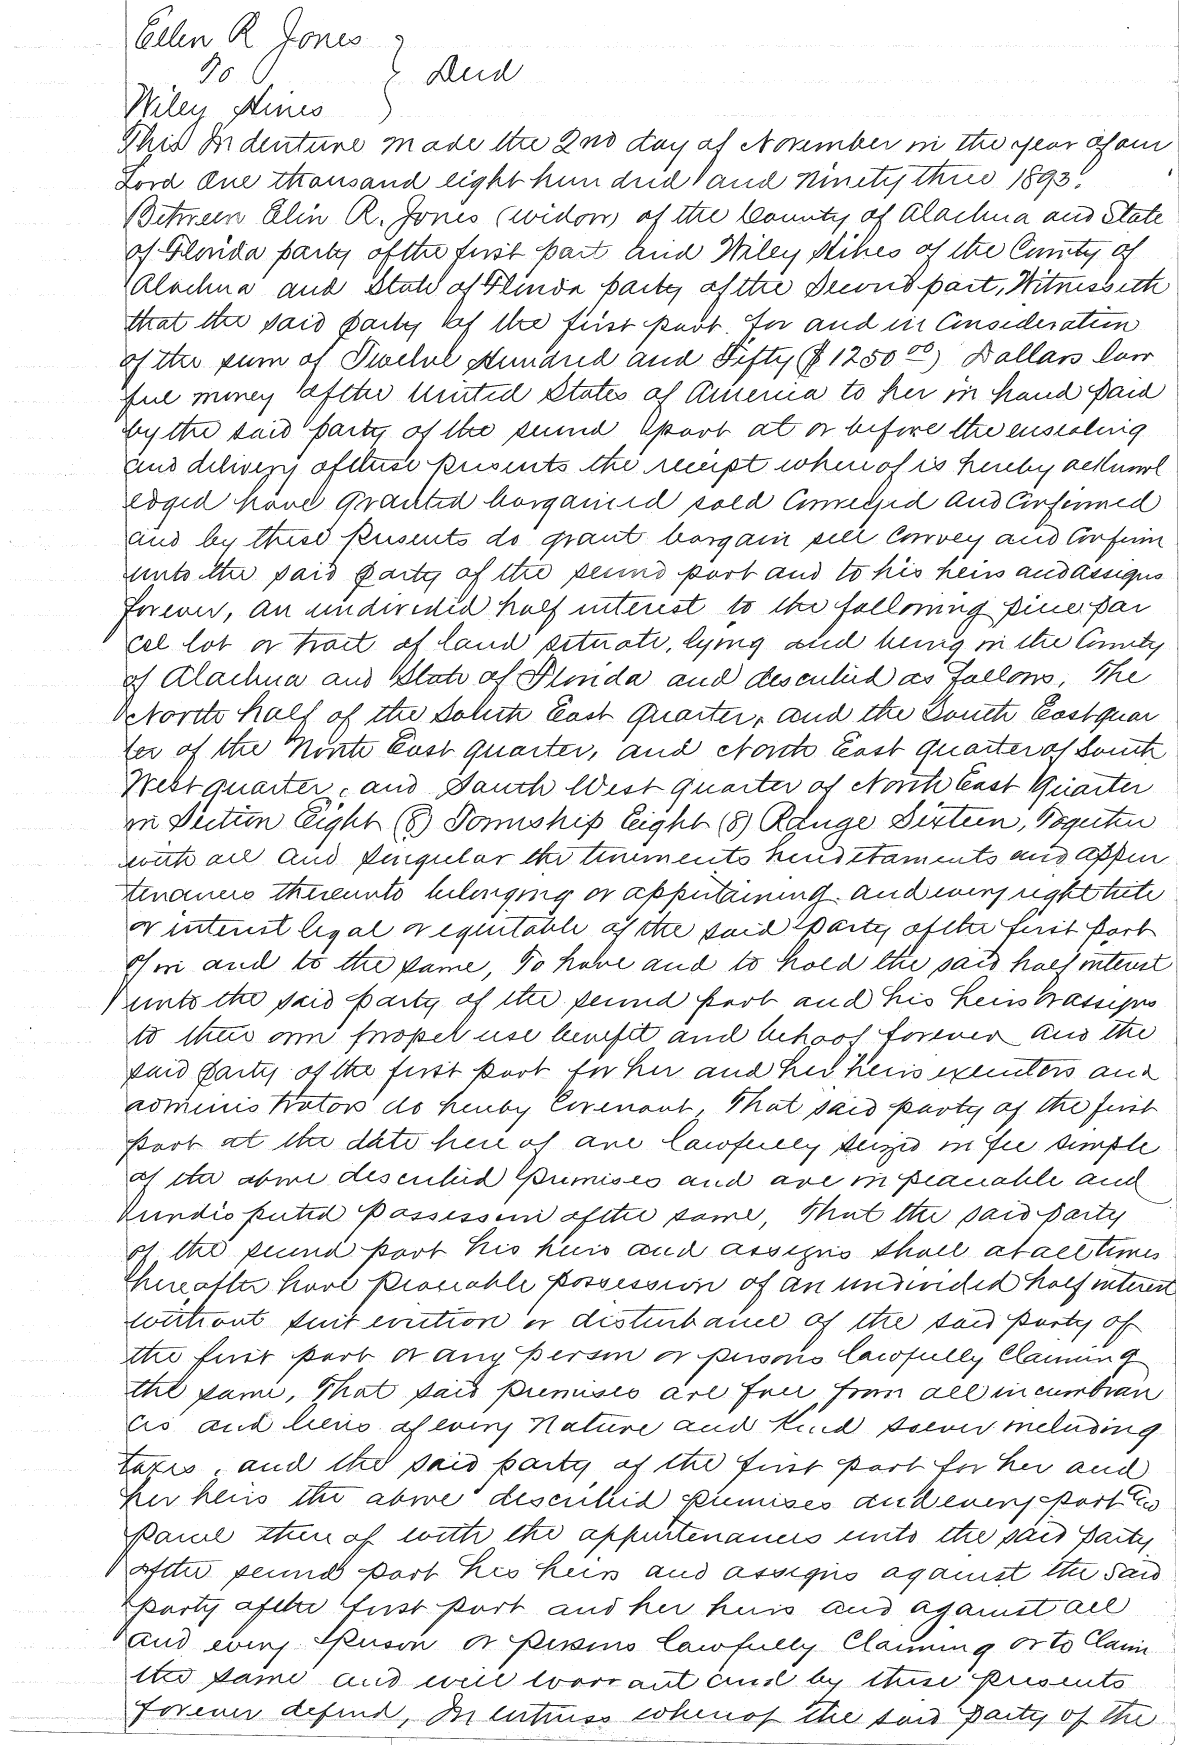 Ellen R Jones
To } Deed
Wiley Hines
This Indenture made the 2nd day of November in the year of our
Lord One thousand eight hundred and ninety three 1893.
Between Elin R. Jones (widow) of the County of Alachua and State
of Florida party of the first part and Wiley Hines of the County of
Alachua and State of Florida party of the Second part, Witnesseth
that the said party of the first part for and in Consideration
of the sum of Twelve Hundred and Fifty ($1250 00) Dollars law
ful money of the United States of America to her in hand paid
by the said party of the second part at or before the ensealing
and delivery of these presents the receipt whereof is hereby acknowl
edged have granted bargained sold Conveyed and Confirmed
and by these presents do grant bargain sell Convey and Confirm
unto the said party of the second part and to his heirs and assigns
forever, an undivided half interest to the following piece par
cel lot or tract of land situate, lying and being in the County
of Alachua and State of Florida and described as follows, The
North half of the South East Quarter, and the South East quar
ter of the North East quarter, and North East quarter of South
West quarter, and South West quarter of North East Quarter
in Section Eight (8) Township Eight (8) Range Sixteen, Together
with all and singular the tenements hereditaments and appur
tenances thereunto belonging or appertaining and every right title
or interest legal or equitable of the said party of the first part
of in and to the same, To have and to hold the said half interest
unto the said party of the second part and his heirs or assigns
to their own proper use benefit and behoof forever and the
said party of the first part for her and her heirs executors and
administrators do hereby Covenant, That said party of the first
part at the date here of are lawfully seized in fee simple
of the above described premises and are in peaceable and
undisputed possession of the same, That the said party
of the second part his heirs and assigns shall at all times
hereafter have peaceable possession of an undivided half interest
without suit eviction or disturbance of the said party of
the first part or any person or persons lawfully Claiming
the same, That said premises are free from all incumbran
ces and liens of every nature and kind soever including
taxes, and the said party of the first part for her and
her heirs the above described premises and every part
parcel there of with the appurtenances unto the said party
of the second part his heirs and assigns against the said
party of the first part and her heirs and against all
and every person or persons lawfully Claiming or to Claim
the same and will warrant and by these presents
forever defend, In witness whereof the said party of the